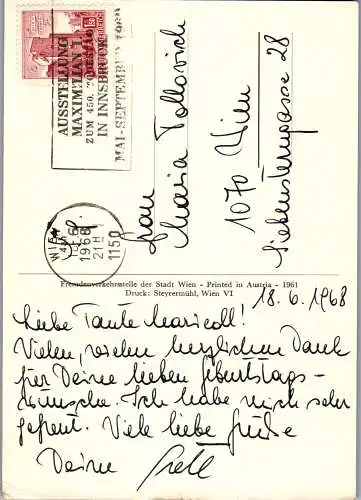 AUSSTELLUNG
MAXIMILIAN I.
ZUM 450. TODESTAG
IN INNSBRUCK
MAI-SEPTEMBER 1969
WIEN
1968
21H
1150
Frau
Maria Tollovich
1070 Wien
Siebensterngasse 28
Fremdenverkehrsstelle der Stadt Wien - Printed in Austria - 1961
Druck: Steyrermühl, Wien VI
18.6.1968
Liebe Tante Mariedl!
Vielen, vielen herzlichen Dank
für Deine lieben Geburtstags-
wünsche. Ich habe mich sehr
gefreut. Viele liebe Grüße
Deine Gretl